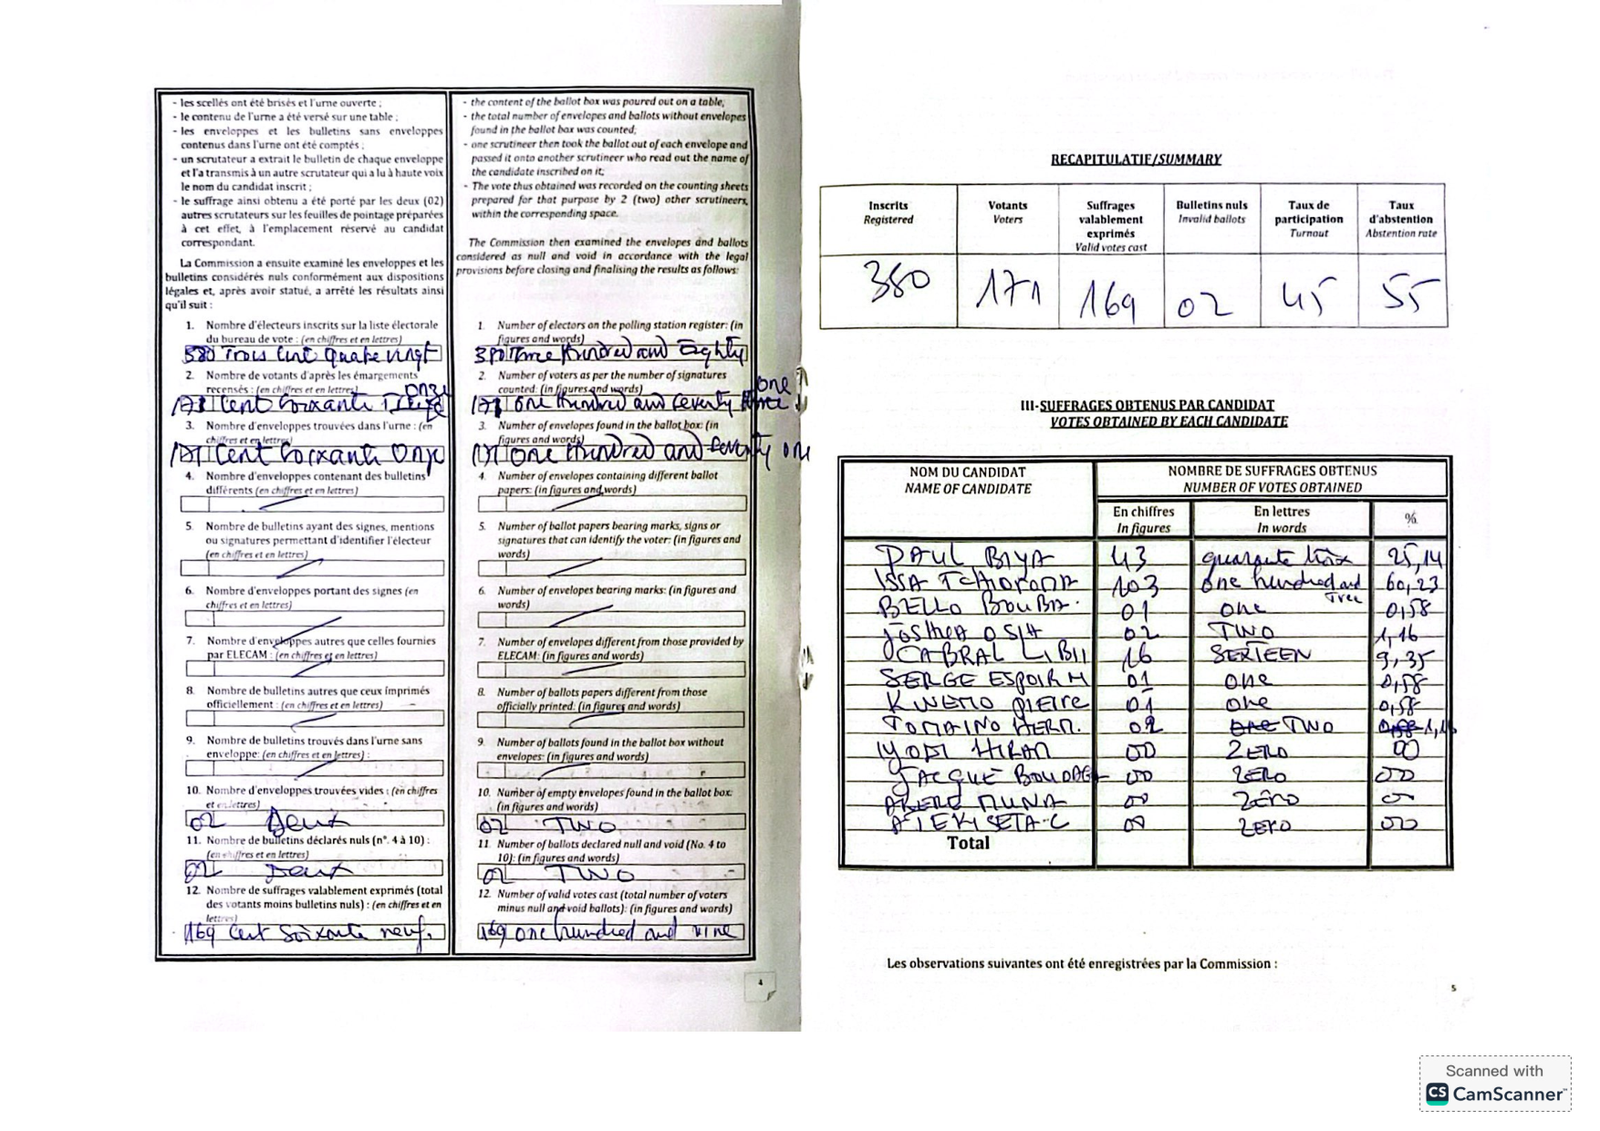 - les scellés ont été brisés et l'urne ouverte ;
- le contenu de l'urne a été versé sur une table ;
- les enveloppes et les bulletins sans enveloppes
contenus dans l'urne ont été comptés ;
- un scrutateur a extrait le bulletin de chaque enveloppe
et l'a transmis à un autre scrutateur qui a lu à haute voix
le nom du candidat inscrit ;
- le suffrage ainsi obtenu a été porté par les deux (02)
autres scrutateurs sur les feuilles de pointage préparées
à cet effet, à l'emplacement réservé au candidat
correspondant.
La Commission a ensuite examiné les enveloppes et les
bulletins considérés nuls conformément aux dispositions
légales et, après avoir statué, a arrêté les résultats ainsi
qu'il suit :
1. Nombre d'électeurs inscrits sur la liste électorale
du bureau de vote : (en chiffres et en lettres)
380 Trois Cent quatre vingt
2. Nombre de votants d'après les émargements
recensés : (en chiffres et en lettres)
onze
171 Cent Soixante
3. Nombre d'enveloppes trouvées dans l'urne : (en
chiffres et en lettres)
171 Cent Soixante Onze
4. Nombre d'enveloppes contenant des bulletins
différents (en chiffres et en lettres)
5. Nombre de bulletins ayant des signes, mentions
ou signatures permettant d'identifier l'électeur
(en chiffres et en lettres)
6. Nombre d'enveloppes portant des signes (en
chiffres et en lettres)
7. Nombre d'enveloppes autres que celles fournies
par ELECAM : (en chiffres et en lettres)
8. Nombre de bulletins autres que ceux imprimés
officiellement : (en chiffres et en lettres)
9. Nombre de bulletins trouvés dans l'urne sans
enveloppe: (en chiffres et en lettres) :
10. Nombre d'enveloppes trouvées vides : (en chiffres
et en lettres)
02 Deux
11. Nombre de bulletins déclarés nuls (n°. 4 à 10) :
(en chiffres et en lettres)
02 Deux
12. Nombre de suffrages valablement exprimés (total
des votants moins bulletins nuls) : (en chiffres et en
lettres)
169 Cent Soixante neuf.
- the content of the ballot box was poured out on a table;
- the total number of envelopes and ballots without envelopes
found in the ballot box was counted;
- one scrutineer then took the ballot out of each envelope and
passed it onto another scrutineer who read out the name of
the candidate inscribed on it;
- The vote thus obtained was recorded on the counting sheets
prepared for that purpose by 2 (two) other scrutineers,
within the corresponding space.
The Commission then examined the envelopes and ballots
considered as null and void in accordance with the legal
provisions before closing and finalising the results as follows:
1. Number of electors on the polling station register: (in
figures and words)
380 Three Hundred and Eighty
2. Number of voters as per the number of signatures
counted: (in figures and words)
one
171 one Hundred and seventy three
3. Number of envelopes found in the ballot box: (in
figures and words)
171 One Hundred and Seventy one
4. Number of envelopes containing different ballot
papers: (in figures and words)
5. Number of ballot papers bearing marks, signs or
signatures that can identify the voter: (in figures and
words)
6. Number of envelopes bearing marks: (in figures and
words)
7. Number of envelopes different from those provided by
ELECAM: (in figures and words)
8. Number of ballots papers different from those
officially printed: (in figures and words)
9. Number of ballots found in the ballot box without
envelopes: (in figures and words)
10. Number of empty envelopes found in the ballot box:
(in figures and words)
02 TWO
11. Number of ballots declared null and void (No. 4 to
10): (in figures and words)
02 TWO
12. Number of valid votes cast (total number of voters
minus null and void ballots): (in figures and words)
169 one hundred and nine
4
RECAPITULATIF/SUMMARY
Inscrits Registered
Votants Voters
Suffrages valablement exprimés Valid votes cast
Bulletins nuls Invalid ballots
Taux de participation Turnout
Taux d'abstention Abstention rate
380 171 169 02 45 55
III-SUFFRAGES OBTENUS PAR CANDIDAT
VOTES OBTAINED BY EACH CANDIDATE
NOM DU CANDIDAT NOMBRE DE SUFFRAGES OBTENUS
NAME OF CANDIDATE NUMBER OF VOTES OBTAINED
En chiffres En lettres %
In figures In words
PAUL BIYA 43 quarante trois 25,14
ISSA TCHIROMA 103 one hundred and Tree 60,23
BELLO BOUBA. 01 one 0,58
JOSHUA OSIH 02 TWO 1,16
CABRAL LIBII 16 SEXTEEN 9,35
SERGE ESPOIR M 01 one 0,58
KWEMO PIERRE 01 one 0,58
TOMAINO HERM. 02 one TWO 0,58 1,16
IYODI HIRAM 00 ZERO 00
JACQUE BOUDAG 00 ZERO 00
AKERE MUNA 00 ZERO 00
ATEKI SETA-C 00 ZERO 00
Total
Les observations suivantes ont été enregistrées par la Commission :
5
Scanned with
CS CamScanner